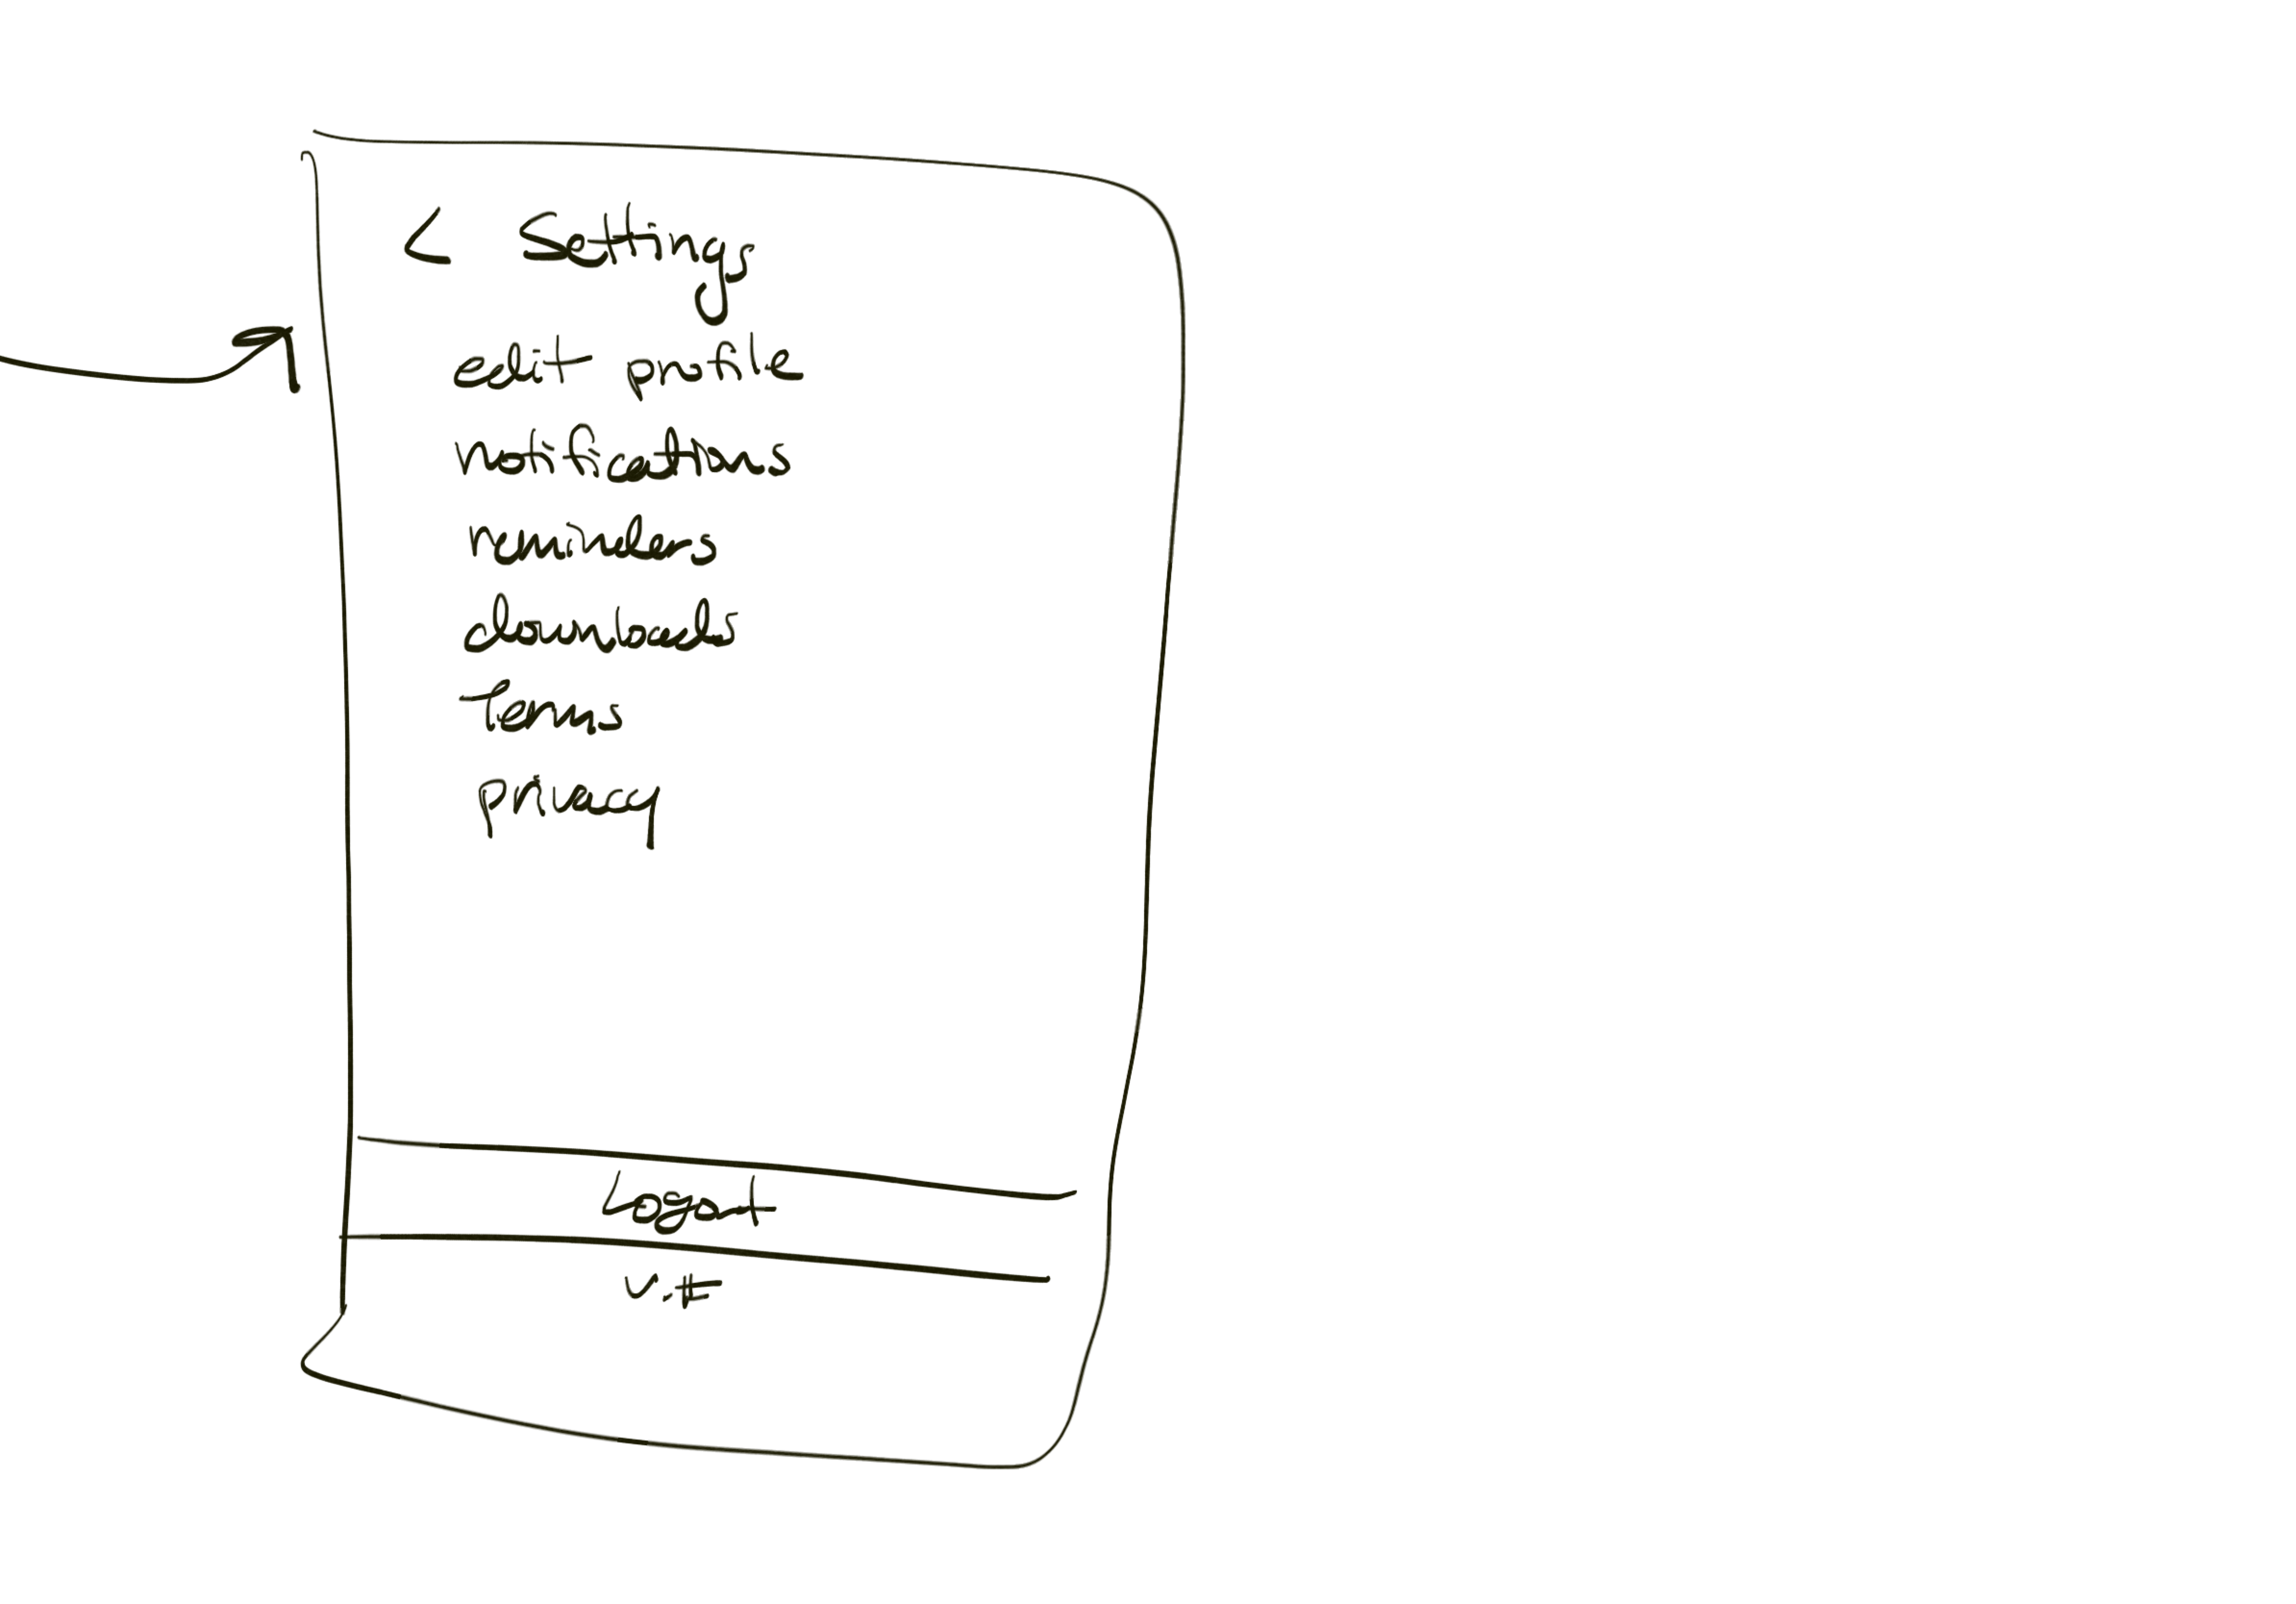 < Settings
edit profile
notifications
reminders
downloads
Terms
privacy
Logout
v.#